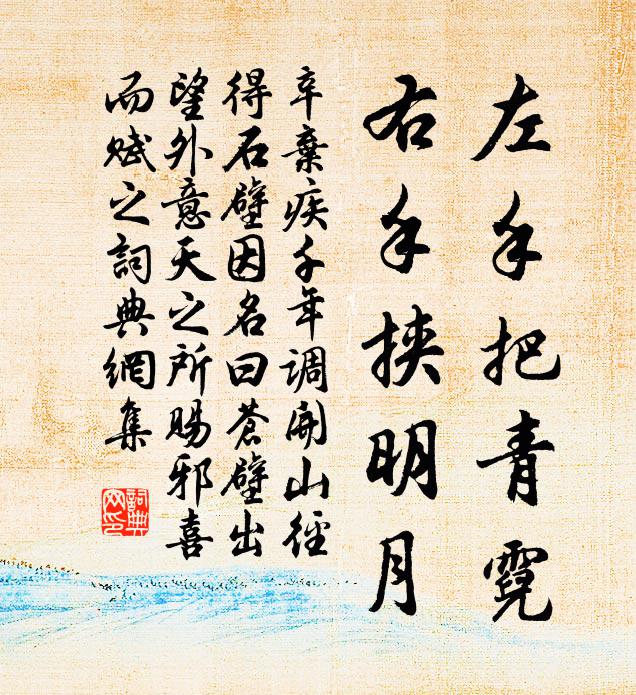 左手把青霓
右手挟明月
辛棄疾千年调開山徑
得石壁因名曰蒼壁出
望外意天之所賜邪喜
而赋之詞典網集
詞典
网印